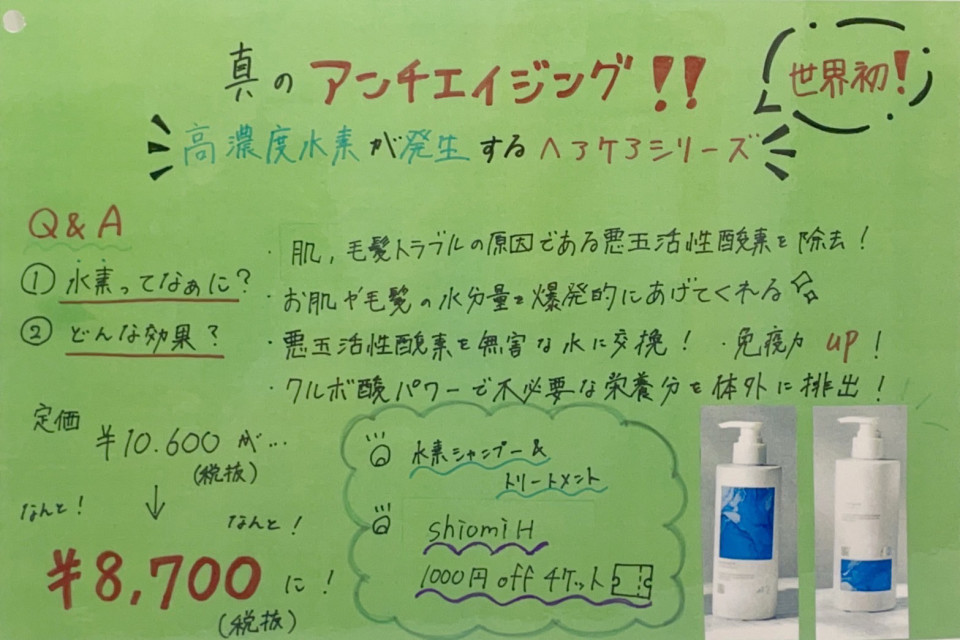 真のアンチエイジング!!
世界初!
高濃度水素が発生するヘアケアシリーズ
Q&A
① 水素ってなぁに?
② どんな効果?
・肌,毛髪トラブルの原因である悪玉活性酸素を除去!
・お肌や毛髪の水分量を爆発的にあげてくれる
・悪玉活性酸素を無害な水に交換! ・免疫力 up!
・クルボ酸パワーで不必要な栄養分を体外に排出!
定価
¥10.600 が…
(税抜)
なんと! ↓ なんと!
¥8,700 に!
(税抜)
水素シャンプー&
トリートメント
shiomi H
1000円 off チケット